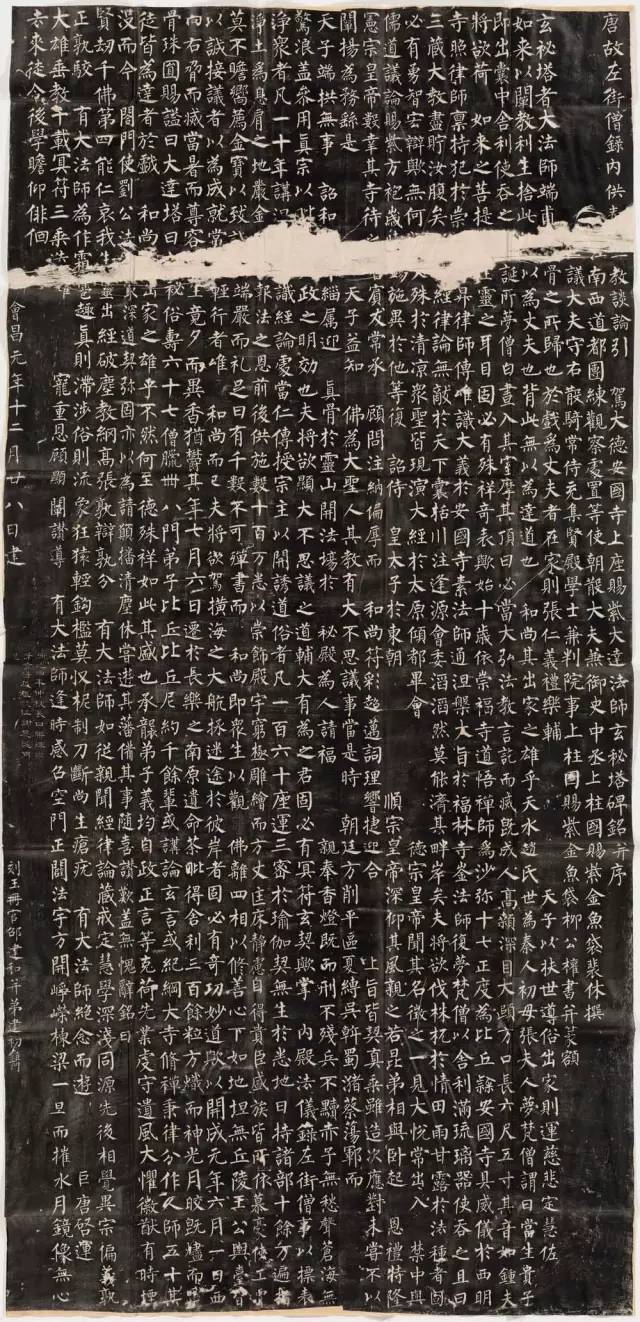 唐故左街僧錄內供教談論引 駕大德安國寺上座賜紫大達法師玄秘塔碑銘并序
南西道都團練觀察處置等使朝散大夫兼御史中丞上柱國賜紫金魚袋裴休撰
議大夫守右散騎常侍充集賢殿學士兼判院事上柱國賜紫金魚袋柳公權書并篆額
玄秘塔者大法師端甫骨之所歸也於戲為丈夫者在家則張仁義禮樂輔 天子以扶世導俗出家則運慈悲定慧佐
如來以闡教利生捨此以為丈夫也背此無以為達道也 和尚其出家之雄乎天水趙氏世為秦人初母張夫人夢梵僧謂曰當生貴子
即出囊中舍利使吞之誕所夢僧白晝入其室摩其頂曰必當大弘法教言訖而滅既成人高顙深目大頤方口長六尺五寸其音如鍾夫
將欲荷 如來之菩提生靈之耳目固必有殊祥奇表歟始十歲依崇福寺道悟禪師為沙弥十七正度為比丘隸安國寺具威儀於西明
寺照律師稟持犯於崇昇律師傳唯識大義於安國寺素法師通涅槃大旨於福林寺崟法師復夢梵僧以舍利滿琉璃器使吞之且曰
三藏大教盡貯汝腹矣經律論無敵於天下囊括川注逢源會委滔滔然莫能濟其畔岸矣夫將欲伐株杌於情田雨甘露於法種者固
必有勇智宏辯歟無何殊於清涼眾聖皆現演大經於太原傾都畢會 德宗皇帝聞其名徵之一見大悅常出入 禁中與
儒道議論賜紫方袍歲錫施異於他等復 詔侍 皇太子於東朝 順宗皇帝深仰其風親之若昆弟相與臥起 恩禮特隆
憲宗皇帝數幸其寺待之若賓友常承 顧問注納偏厚而 和尚符彩超邁詞理響捷迎合 上旨皆契真乘雖造次應對未嘗不以
闡揚為務繇是 天子益知 佛為大聖人其教有大不思議事當是時 朝廷方削平區夏縛吳斡蜀瀦蔡蕩鄆而
天子端拱無事 詔和緇屬迎 真骨於靈山開法場於 秘殿為人請福 親奉香燈既而刑不殘兵不黷赤子無愁聲蒼海無
驚浪蓋參用真宗以毗政之明効也夫將欲顯大不思議之道輔大有為之君固必有冥符玄契歟掌 內殿法儀錄左街僧事以標表
淨眾者凡一十年講識經論處當仁傳授宗主以開誘道俗者凡一百六十座運三密於瑜伽契無生於悉地日持諸部十餘万遍指
淨土為息肩之地嚴金報法之恩前後供施數十百万悉以崇飾殿宇窮極雕繪而方丈匡床靜慮自得貴臣盛族皆所依慕豪俠工賈
莫不瞻嚮薦金寶以致誠端嚴而礼足日有千數不可殫書而 和尚即眾生以觀 佛離四相以修善心下如地坦無丘陵王公輿臺皆
以誠接議者以為成就常輕行者唯 和尚而已夫將欲駕橫海之大航拯迷途於彼岸者固必有奇功妙道歟以開成元年六月一日西
向右脇而滅當暑而尊容生竟夕而異香猶鬱其年七月六日遷於長樂之南原遺命荼毗得舍利三百餘粒方熾而神光月皎既燼而靈
骨珠圓賜謚曰大達塔曰秘俗壽六十七僧臘卌八門弟子比丘比丘尼約千餘輩或講論玄言或紀綱大寺脩禪秉律分作人師五十其
徒皆為達者於戲 和尚出家之雄乎不然何至德殊祥如此其盛也承襲弟子義均自政正言等克荷先業虔守遺風大懼徽猷有時堙
沒而今 閤門使劉公法最深道契弥固亦以為請願播清塵休嘗遊其藩備其事隨喜讚歎蓋無愧辭銘曰
賢劫千佛第四能仁哀我生靈出經破塵教綱高張孰辯孰分 有大法師如從親聞經律論藏戒定慧學深淺同源先後相覺異宗偏義孰
正孰駮 有大法師為作霜雹趣真則滯涉俗則流象狂猿輕鈎檻莫收柅制刀斷尚生瘡疣 有大法師絕念而遊 巨唐啓運
大雄垂教千載冥符三乘迭 寵重恩顧顯闡讚導 有大法師逢時感召空門正闢法宇方開崢嶸棟梁一旦而摧水月鏡像無心
去來徒令後學瞻仰俳佪
會昌元年十二月廿八日建 刻玉冊官邵建和并弟建初鐫